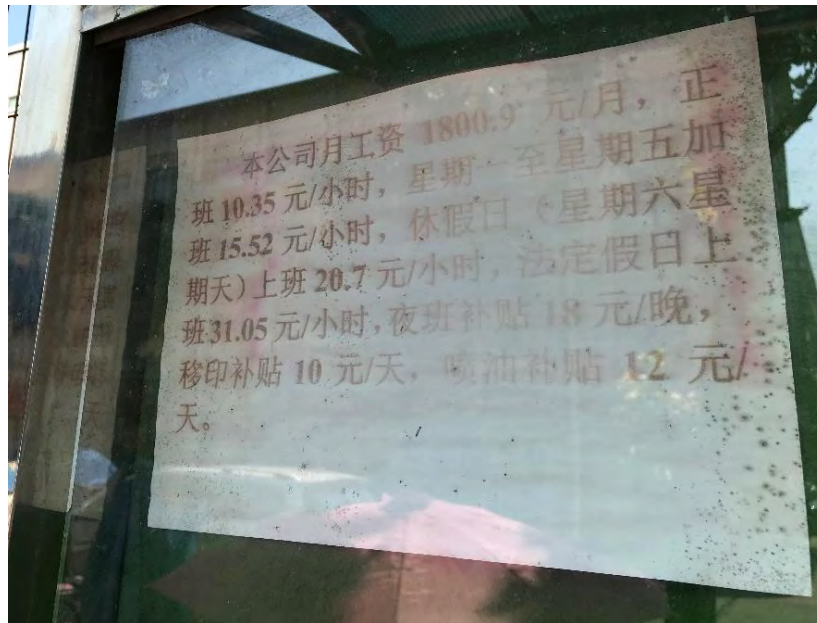 本公司月工资 1800.9 元/月，正
班 10.35 元/小时，星期一至星期五加
班 15.52 元/小时，休假日（星期六星
期天）上班 20.7 元/小时，法定假日上
班 31.05 元/小时，夜班补贴 18 元/晚，
移印补贴 10 元/天，喷油补贴 12 元/
天。